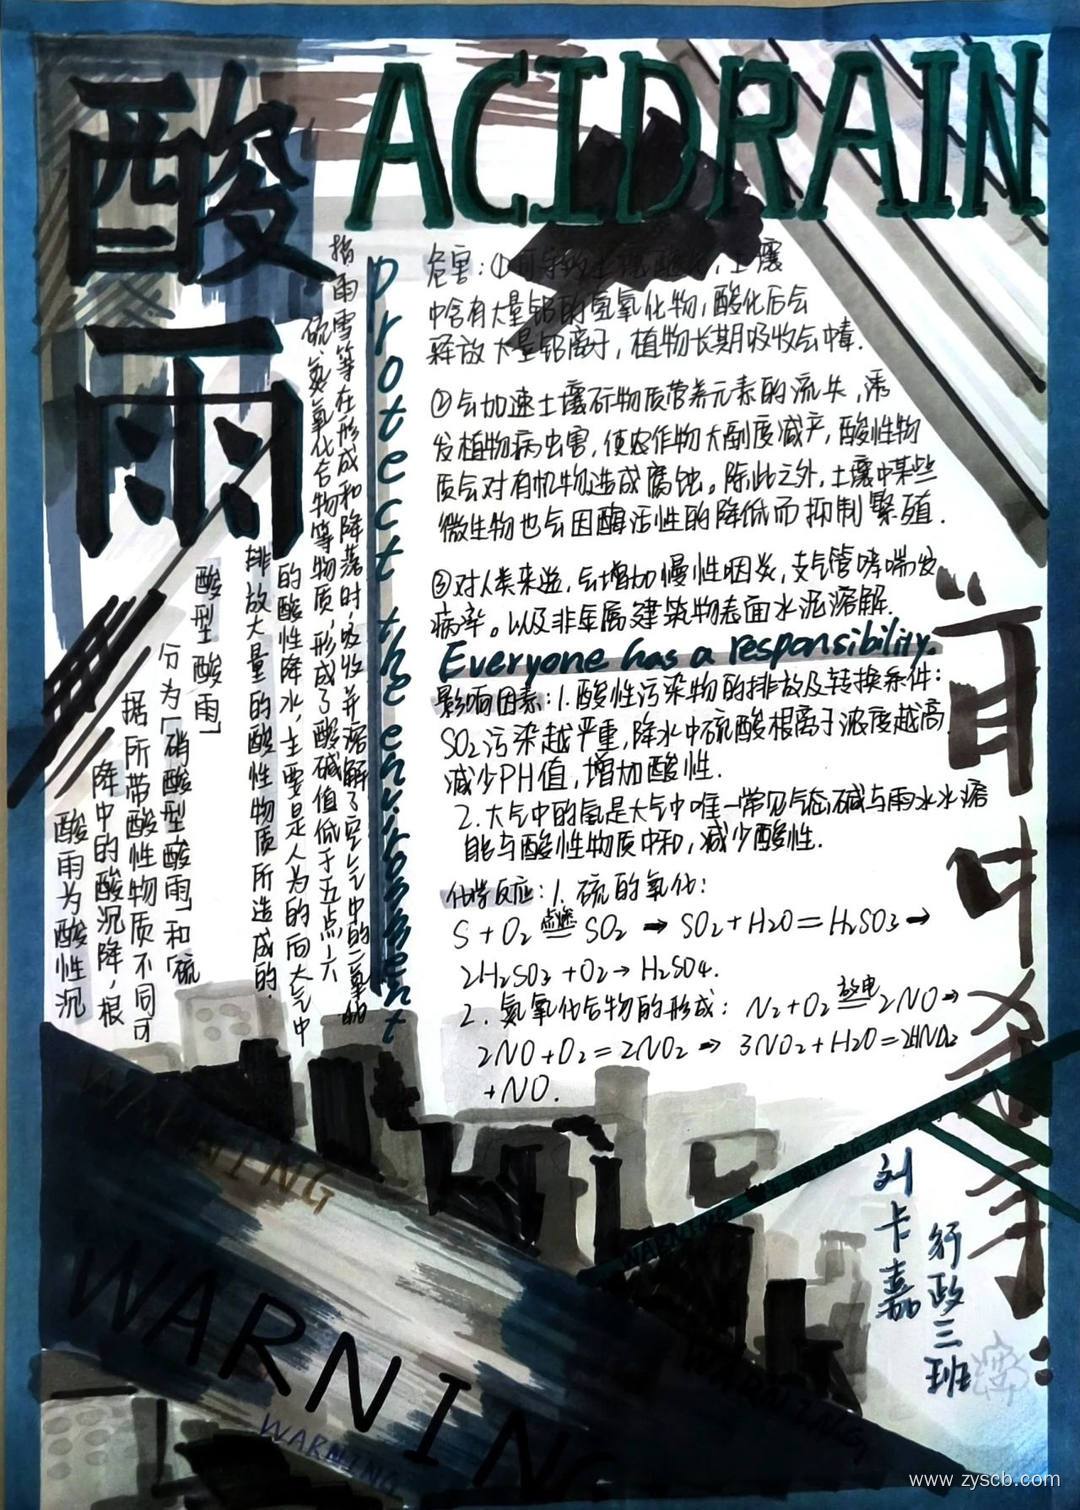 酸雨
ACIDRAIN
指雨雪等在形成和降落时，吸收并溶解了空气中的二氧化
硫、氮氧化合物等物质，形成了酸碱值低于五点六
的酸性降水，主要是人为的向大气中
排放大量的酸性物质所造成的.
酸雨为酸性沉
降中的酸沉降，根
据所带酸性物质不同可
分为「硝酸型酸雨」和「硫
酸型酸雨」
Protect the environment
危害：①可导致土壤酸化，土壤
中含有大量铝的氢氧化物，酸化后会
释放大量铝离子，植物长期吸收会中毒.
②会加速土壤矿物质营养元素的流失，诱
发植物病虫害，使农作物大副度减产，酸性物
质会对有机物造成腐蚀。除此之外，土壤中某些
微生物也会因酶活性的降低而抑制繁殖.
③对人类来说，会增加慢性咽炎，支气管哮喘发
病率。以及非金属建筑物表面水泥溶解.
Everyone has a responsibility.
影响因素：1.酸性污染物的排放及转换条件：
SO2污染越严重，降水中硫酸根离子浓度越高
减少PH值，增加酸性.
2.大气中的氨是大气中唯一常见气态碱与雨水水溶
能与酸性物质中和，减少酸性.
化学反应：1.硫的氧化：
S+O2 点燃 SO2 → SO2+H2O=H2SO3→
2H2SO3+O2→H2SO4.
2.氮氧化合物的形成：N2+O2 放电 2NO→
2NO+O2=2NO2→ 3NO2+H2O=2HNO3
+NO.
刘卡嘉
行政三班
WARNING
WARNING
WARNING
WARNING
WARNING
www.zyscb.com